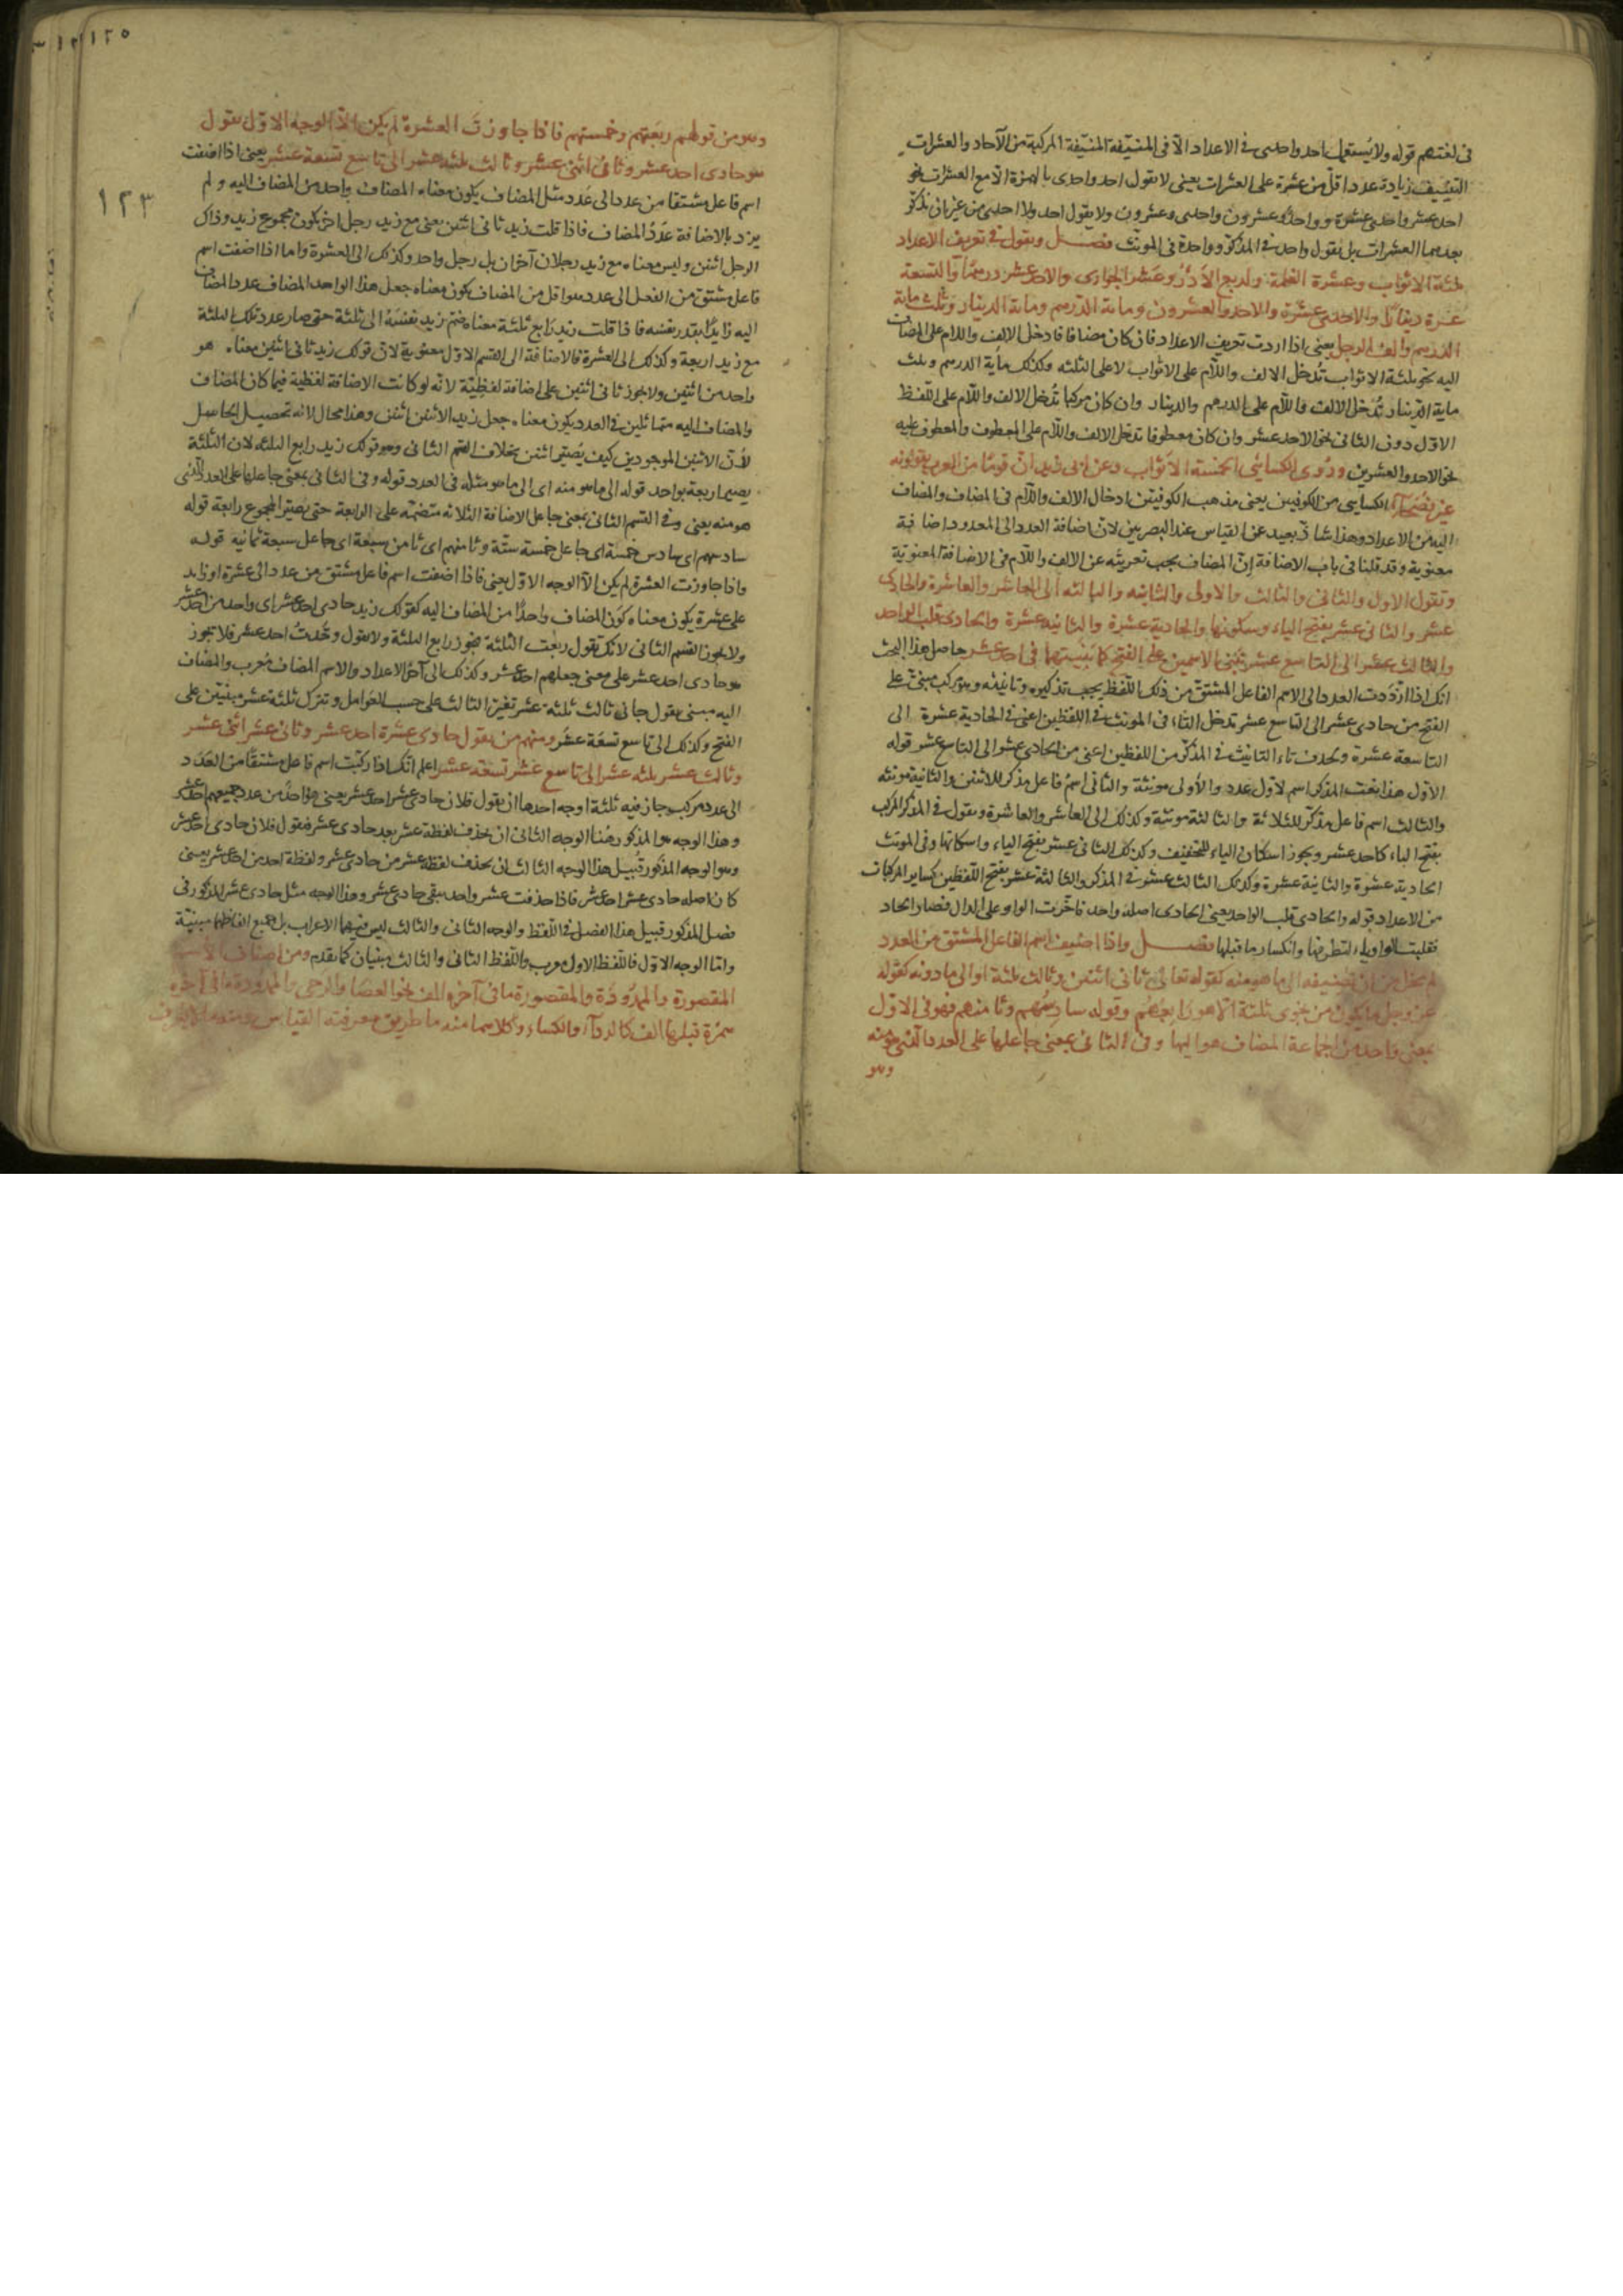 فى لغتهم قوله ولا يستعمل احد واحدى فى الاعداد الا فى المنيّفة المنيّفة المركبة من الآحاد والعشرات
التنييف زيادة عدد اقلّ من عشرة على العشرات يعنى لا يقول احد واحدى بالهمزة الا مع العشرات نحو
احد عشر واحدى عشرة وواحد وعشرون واحدى وعشرون ولا يقول احد ولا احدى من غير ان يذكر
بعدهما العشرات بل يقول واحد فى المذكر وواحدة فى المونث فصل ويقول فى تعريف الاعداد
ثلثة الاثواب وعشرة الغلمة واربع الادؤر وعشر الجوارى والاحد عشر درهمًا والتسعة
عشرة دينارًا والاحدى عشرة والاحد والعشرون ومائة الدرهم ومائة الدينار وثلث مائة
الدرهم والف الرجل يعنى اذا اردت تعريف الاعداد فان كان مضافا فادخل الالف واللام على المضاف
اليه نحو ثلثة الاثواب تُدخل الالف واللام على الاثواب لا على الثلثه وكذلك مأية الدرهم وثلث
ماية الدينار تُدخل الالف واللام على الدرهم والدينار وان كان مركبا تُدخل الالف واللام على اللفظ
الاول دون الثانى نحو الاحد عشر وان كان معطوفا تدخل الالف واللام على المعطوف والمعطوف عليه
نحو الاحد والعشرين وروى الكسائى الخمسة الاثواب وعن ابى زيد انّ قومًا من العرب يقولونه
غير فصحآء الكسايى من الكوفيين يعنى مذهب الكوفيين ادخال الالف واللام فى المضاف والمضاف
اليه من الاعداد وهذا شاذّ بعيد عن القياس عند البصريين لان اضافة العدد الى المعدود اضافة
معنوية وقد قلنا فى باب الاضافة إن المضاف يجب تعريته عن الالف واللام فى الاضافة المعنوية
وتقول الاول والثانى والثالث والاولى والثانيه والثالثه الى العاشر والعاشرة والحادى
عشر والثانى عشر بفتح الياء وسكونها والحادية عشرة والثانية عشرة والحادى قلب الواحد
والثالث عشر الى التاسع عشر تبنى الاسمين على الفتح كما بنيتهما فى احد عشر حاصل هذا البحث
انك اذا اردت العدد الى الاسم الفاعل المشتق من ذلك اللفظ يجب تذكيره وتانيثه وهو مركب مبنى على
الفتح من حادى عشر الى التاسع عشر تدخل التاء فى المونث فى اللفظين اعنى فى الحادية عشرة الى
التاسعة عشرة وتحذف تاء التانيث فى المذكر من اللفظين اعنى من الحادى عشر الى التاسع عشر قوله
الاول هذا نعت المذكر اسم لاول عدد والأولى مونثة والثانى اسمُ فاعل مذكر للاثنين والثانية مونثه
والثالث اسم فاعل مذكر للثلاثة والثالثة مونثة وكذلك الى العاشر والعاشرة ويقول فى المذكر المركب
بفتح الياء كاحد عشر ويجوز اسكان الياء للتخفيف وكذلك الثانى عشر بفتح الياء واسكانها وفى المونث
الحادية عشرة والثانية عشرة وكذلك الثالث عشر فى المذكر والثالثة عشر بفتح اللفظين كساير المركبات
من الاعداد قوله والحادى قلب الواحد يعنى الحادى اصله واحد فاخّرت الواو على الدال فصار الحاد
فقلبت الواو ياء لتطرفها وانكسار ما قبلها فصل واذا اضيف اسم الفاعل المشتق من العدد
لم يخل من ان تضيفه الى ما هو منه كقوله تعالى ثانى اثنين وثالث ثلثة او الى ما دونه كقوله
عز وجل ما يكون من نجوى ثلثة الا هو رابعهم وقوله سادسهم وثامنهم فهو فى الاول
بمعنى واحد من الجماعة المضاف هو اليها وفى الثانى بمعنى جاعلها على العدد الذى هو منه
وهو
١٢٥
١٢٣
وهو من قولهم ربعتهم وخمستهم فاذا جاوزت العشرة لم يكن الّا الوجه الاوّل يقول
هو حادى احد عشر وثانى اثنى عشر وثالث ثلثه عشر الى تاسع تسعة عشر يعنى اذا اضفت
اسم فاعل مشتقا من عدد الى عدد مثل المضاف يكون معناه المضاف واحد من المضاف اليه ولم
يزد بالاضافة عددُ المضاف فاذا قلت زيد ثانى اثنين يعنى مع زيد رجل اخر يكون مجموع زيد وذاك
الرجل اثنين وليس معناه مع زيد رجلان آخران بل رجل واحد وكذلك الى العشرة واما اذا اضفت اسم
فاعل مشتق من الفعل الى عدد هو اقل من المضاف يكون معناه جعل هذا الواحد المضاف عدد المضاف
اليه زايدًا بقدر نفسه فاذا قلت زيد رابع ثلثة معناه ضمّ زيد نفسَهُ الى ثلثة حتى صار عدد تلك الثلثة
مع زيد اربعة وكذلك الى العشرة فالاضافة الى القسم الاول معنوية لان قولك زيد ثانى اثنين معناه هو
واحد من اثنين ولا يجوز ثانى اثنين على اضافة لفظيّة لانه لو كانت الاضافة لفظية فيما كان المضاف
والمضاف اليه متماثلين فى العدد يكون معناه جعل زيد الاثنين اثنين وهذا محال لانه تحصيل الحاصل
لأن الاثنين الموجودين كيف يُصيّر اثنين بخلاف القسم الثانى وهو قولك زيد رابع الثلثه لان الثلثة
يصير اربعة بواحد قوله الى ما هو منه اى الى ما هو مثله فى العدد قوله وفى الثانى بمعنى جاعلها على العدد الذى
هو منه يعنى وفى القسم الثانى بمعنى جاعل الاضافة الثلاثة منضمّة على الرابعة حتى يصير المجموع رابعة قوله
سادسهم اى سادس خمسة اى جاعل خمسة ستّة وثامنهم اى ثامن سبعة اى جاعل سبعة ثمانية قوله
واذا جاوزت العشرة لم يكن الّا الوجه الاوّل يعنى فاذا اضفت اسم فاعل مشتق من عدد الى عشرة او زايد
على عشرة يكون معناه كون المضاف واحدًا من المضاف اليه كقولك زيد حادى احد عشر اى واحد من احد عشر
ولا يجوز القسم الثانى لانك تقول ربعت الثلثة فيجوز رابع الثلثة ولا يقول وحّدتُ احد عشر فلا تجوز
هو حادى احد عشر على معنى جعلهم احد عشر وكذلك الى آخر الاعداد والاسم المضاف مُعرب والمضاف
اليه مبنى يقول جانى ثالث ثلثة عشر تغيّر الثالث على حسب العوامل وتترك ثلثة عشر مبنيين على
الفتح وكذلك الى تاسع تسعة عشر ومنهم من يقول حادى عشرة احد عشر وثانى عشر اثنى عشر
وثالث عشر ثلثه عشر الى تاسع عشر تسعة عشر اعلم انّك اذا ركّبت اسم فاعل مشتقًا من العدد
الى عدد مركب جاز فيه ثلثة اوجه احدها ان يقول فلان حادى عشر احد عشر يعنى هو احد من عدد جميعهم احد عشر
وهذا الوجه هو المذكور هُنا الوجه الثانى ان يحذف لفظة عشر بعد حادى عشر فيقول فلان حادى احد عشر
وهو الوجه المذكور قُبيل هذا الوجه الثالث ان يحذف لفظه عشر من حادى عشر ولفظة احد من احد عشر يعنى
كان اصله حادى عشر احد عشر فاذا حذفت عشر واحد يبقى حادى عشر وهذا الوجه مثل حادى عشر المذكور فى
فصل المذكور قبيل هذا الفصل فى اللفظ والوجه الثانى والثالث ليس فيهما الاعراب بل جميع الفاظها مبنيّة
وامّا الوجه الاوّل فاللفظ الاول معرب واللفظ الثانى والثالث مبنيان كما تقدم ومن اصناف الاسم
المقصورة والممدُودَة والمقصورة ما فى آخره الف نحو العصَا والرحى والممدودة ما فى آخره
همزة قبلها الف كالردآء والكساء وكلاهما منه ما طريق معرفته القياس ومنه ما لا يعرف